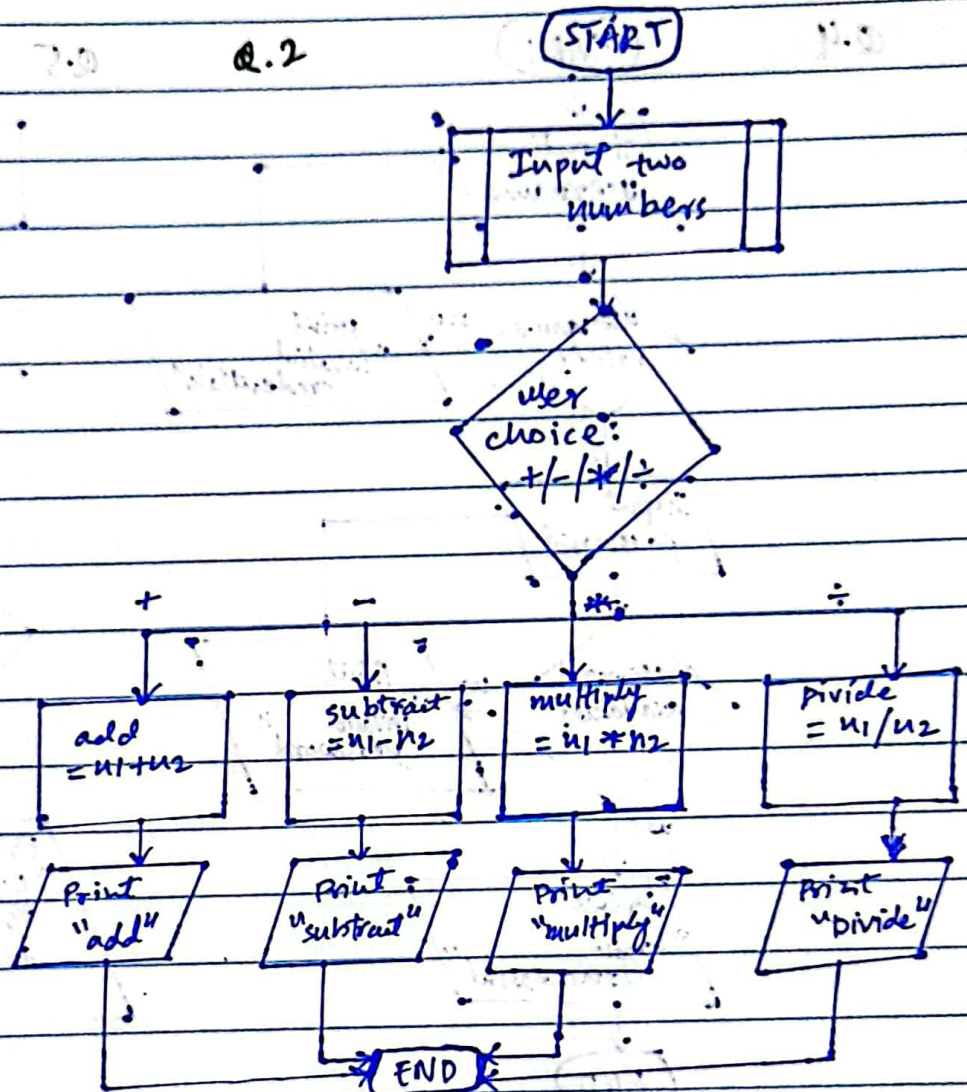 Q.2
START
Input two
numbers
user
choice:
+/-/*/÷
+
-
*
÷
add
=n1+n2
subtract
=n1-n2
multiply
=n1*n2
Divide
=n1/n2
Print
"add"
Print
"subtract"
Print
"multiply"
Print
"Divide"
END